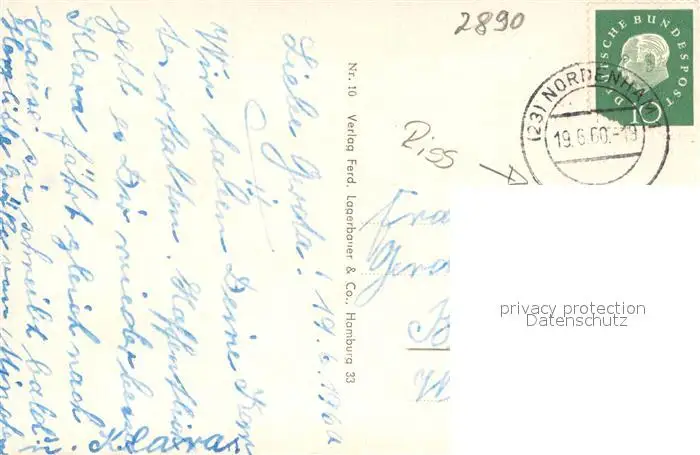 2890
DEUTSCHE BUNDESPOST
10
(23) NORDENHAM
19.6.60.-19
Riss
Nr. 10 Verlag Ferd. Lagerbauer & Co., Hamburg 33
Liebe Gerda! 19.6.1960
Wir haben Deine Kar
te erhalten. Hoffentlich
geht es Dir wieder besser
Klara fährt gleich nach
Hause, sie schreibt bald
Herzliche Grüße von
Klara
Frau
privacy protection
Datenschutz